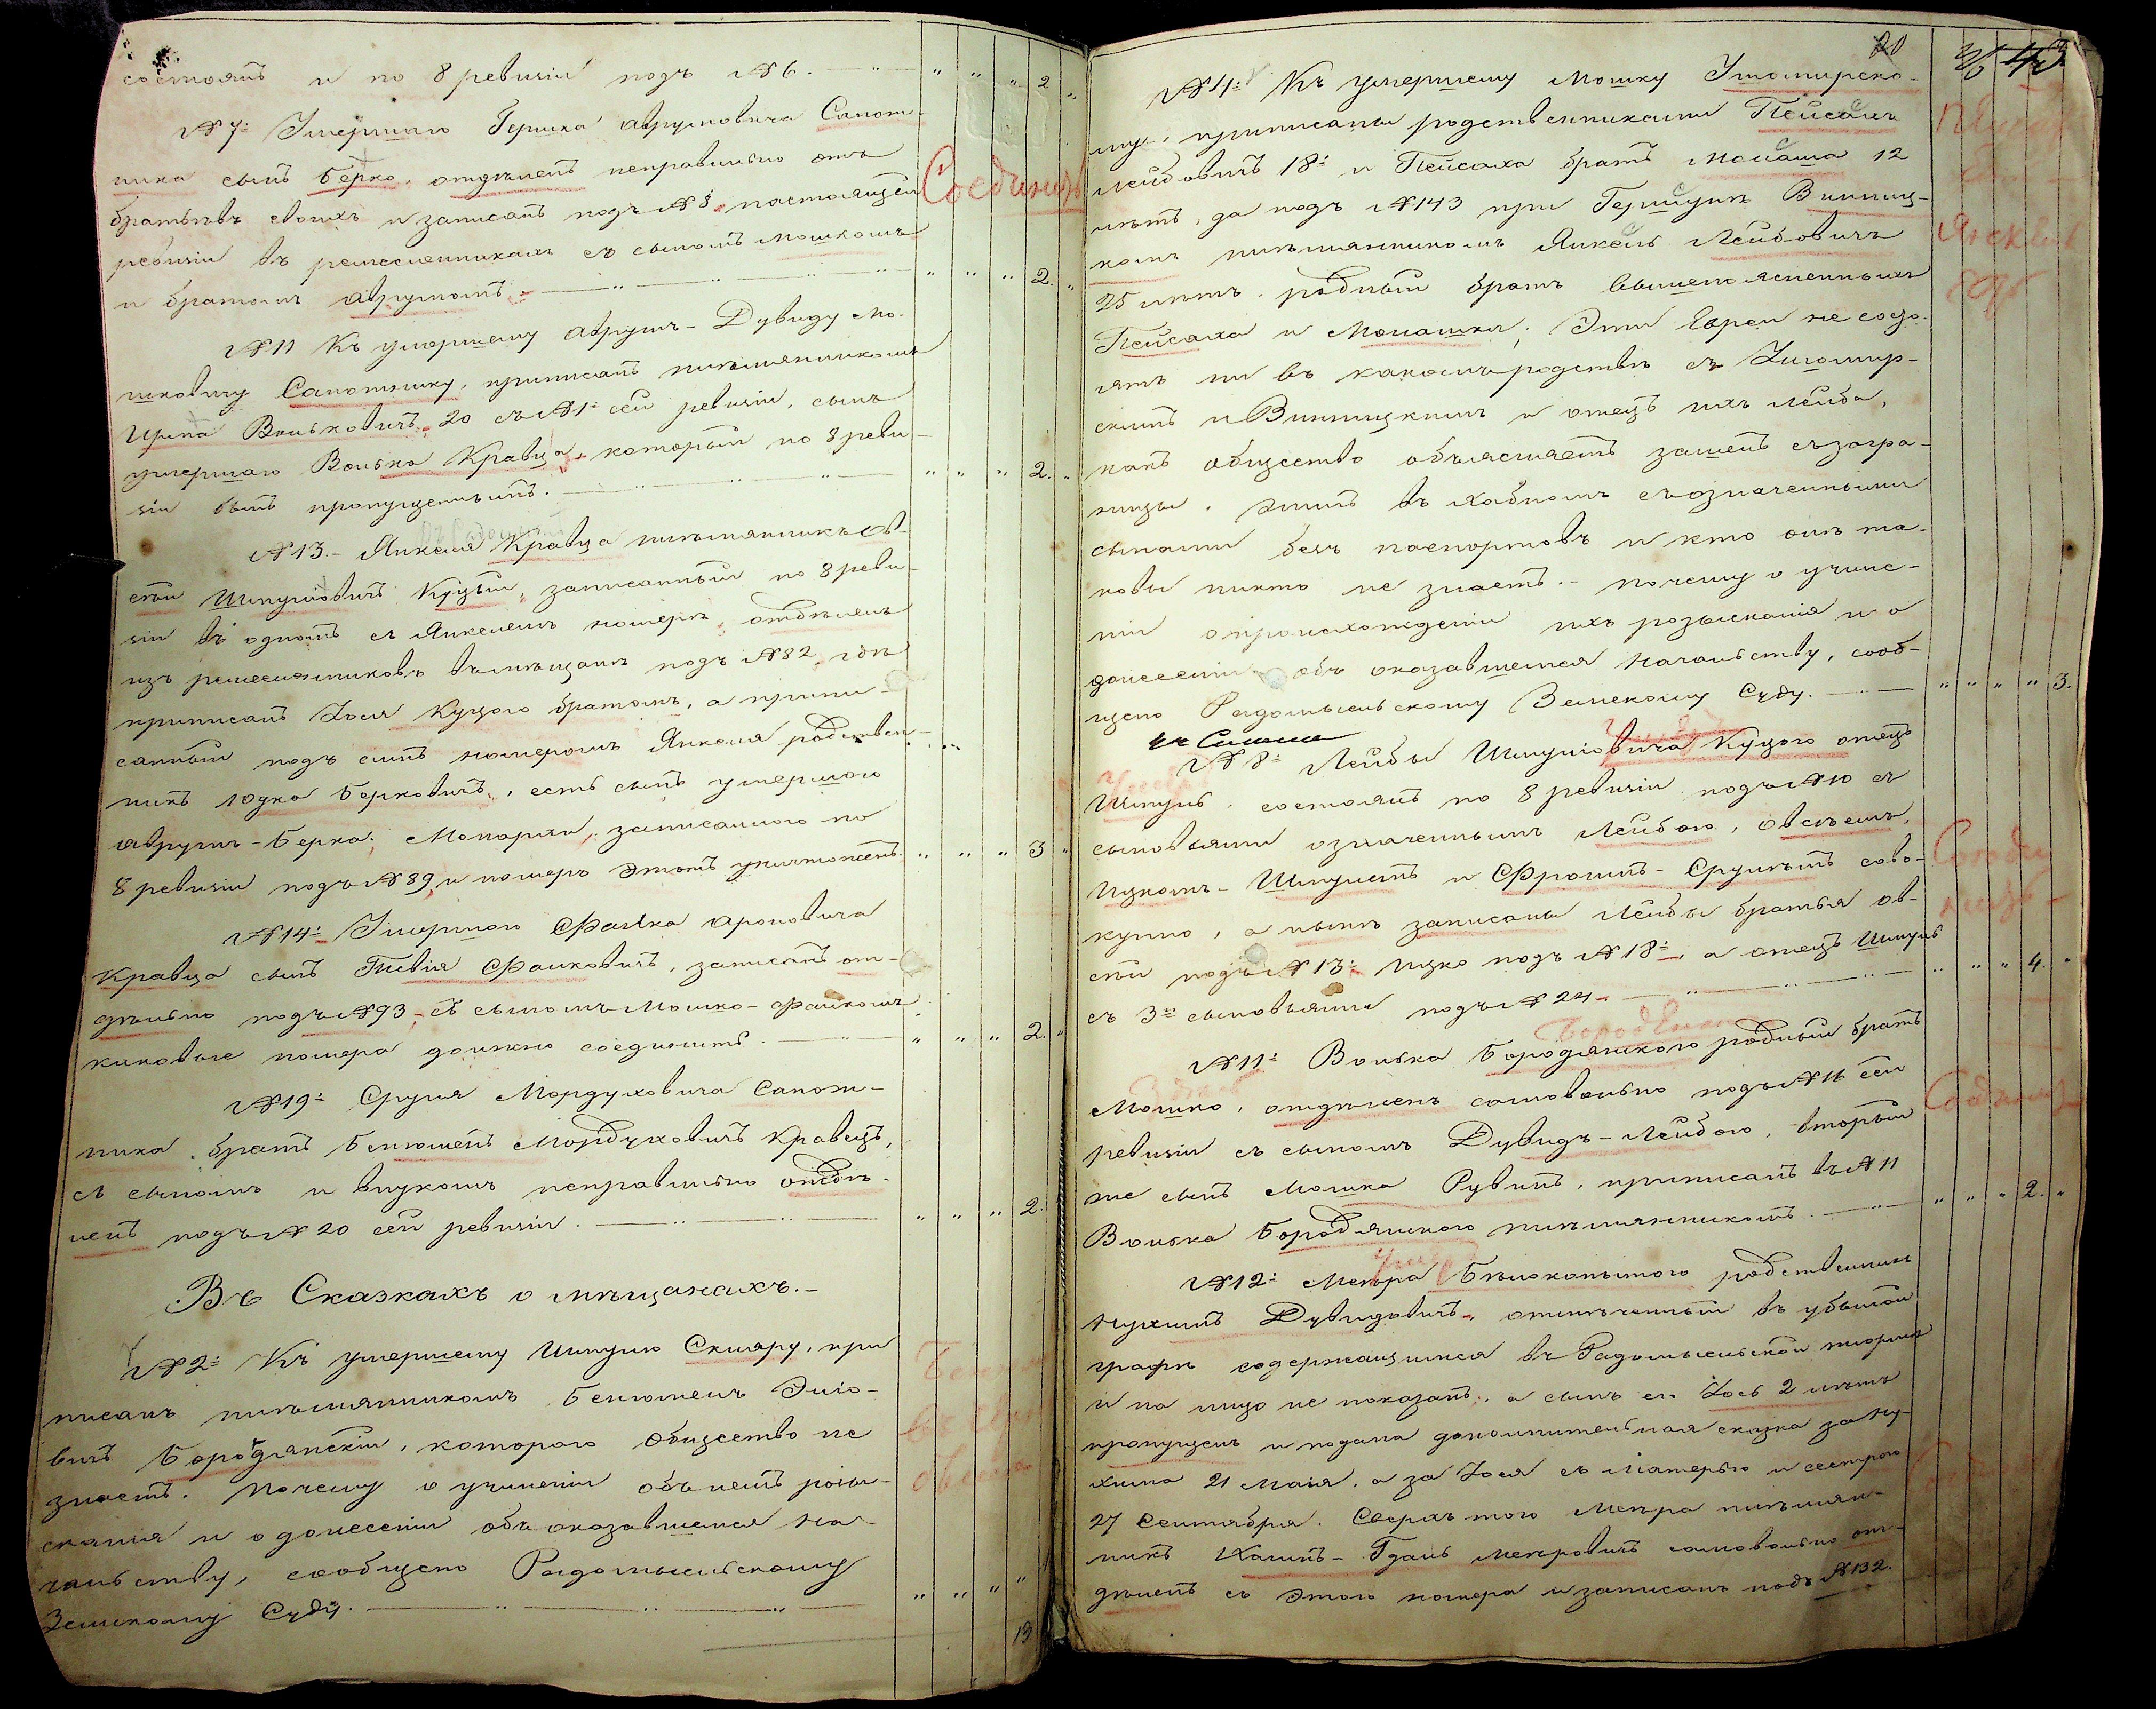 состоятъ и по 8 ревизіи подъ №6. 2
№7: Умершаго Гершка Аврумовича Сапож-
ника сынъ Берко, отдѣленъ неправильно отъ
братьевъ своихъ и записанъ подъ №8 настоящей
Соединить
ревизіи въ ремесленникахъ съ сыномъ Мошкомъ
и братомъ Аврумомъ. 2.
№11 Къ умершему Аврумъ-Дувиду Мо-
шковичу Сапожнику, приписанъ племянникомъ
Волковичъ 20 съ №1: сей ревизіи, сынъ
умершаго Волька Кравца, который по 8 реви-
зіи былъ пропущеннымъ. 2.
№13.- Янкеля Кравца племянникъ Ов-
сѣй Шмулiовичъ Куцый, записанный по 8 реви-
зіи въ одномъ съ Янкелемъ номерѣ, отдѣленъ
изъ ремесленниковъ въ мѣщане подъ №82, гдѣ
приписанъ Іося Куцого братомъ, а припи-
санный подъ симъ номеромъ Янкеля родствен-
никъ Юдка Берковичъ, есть сынъ умершого
Аврумъ-Берка Монархи, записанного по
8 ревизіи подъ №89, и номеръ этотъ уничтоженъ. 3
№14: Умершого Фалька Ароновича
Кравца сынъ Тевія Фальковичъ, записанъ от-
дѣльно подъ №93 съ сыномъ Мошко-Файкомъ
каковые номера должно соединить. 2.
№19: Сруля Мордуховича Сапож-
ника, братъ Бенюменъ Мордуховичъ Кравецъ,
съ сыномъ и внукомъ неправильно отдѣ-
ленъ подъ №20 сей ревизіи. 2.
Въ Сказкахъ о мѣщанахъ.-
№2: Къ умершему Шмулю Скляру, при
писанъ племянникомъ Бенюменъ Эліо-
вичъ Бородянскій, которого Общество не
знаетъ. Почему о учиненіи объ немъ розы-
сканія и о донесеніи объ оказавшемся На-
чальству, сообщено Радомысльскому
Земскому Суду.
13
20 43.
№4: Къ умершему Мошку Житомирско-
му, приписаны родственниками Пейсахъ
Лейбовичъ 18: и Пейсаха братъ Монаша 12
лѣтъ, да подъ №143 при Гершунѣ Винниц-
комъ племянникомъ Янкель Лейбовичъ
25 лѣтъ, родный братъ вышепоясненныхъ
Пейсаха и Монашки; Эти Евреи не состо-
ятъ ни въ какомъ родствѣ съ Житомир-
скимъ и Винницкимъ и отецъ ихъ Лейба,
какъ общество объясняетъ зашелъ съ загра-
ницы, жилъ въ Хабномъ съ означенными
сынами безъ паспортовъ и кто онъ та-
ковы никто не знаетъ. - почему о учине-
ніи о происхожденіи ихъ розысканія и о
донесеніи объ оказавшемся Начальству, сооб-
щено Радомысльскому Земскому Суду. 3.
№8: Лейбы Шмулiовича Куцого отецъ
Шмуль, состоялъ по 8 ревизіи подъ №10 съ
сыновьями означеннымъ Лейбою, Овсѣемъ,
Ицкомъ-Шмулемъ и Фроимъ-Срулемъ сово-
купно, а нынѣ записаны Лейбы братья Ов-
сѣй подъ №13: Ицко подъ №18:, а отецъ Шмуль 4.
съ 3мя сыновьями подъ №24.
№11: Волька Бородянского родный братъ
Мошко, отдѣленъ самовольно подъ №16 сей
ревизіи съ сыномъ Дувидъ-Лейбою, вторый
же сынъ Мошка Рувинъ, приписанъ въ №11
Волька Бородянского племянникомъ. 2.
№12: Меира Бѣлокопытого родственникъ
Нухимъ Дувидовичъ, отмѣченный въ убылой
графѣ содержащимся въ Радомысльской тюрьмѣ
и на лицо не показанъ, а сынъ его Іось 2 лѣтъ
пропущенъ и подана дополнительная сказка за Ну-
хима 21 Маія, а за Іося съ Матерью и сестрою
27 Сентября. Сверхъ того Меира племян-
никъ Хаимъ-Гданъ Меировичъ самовольно от-
дѣленъ съ этого номера и записанъ подъ №132.